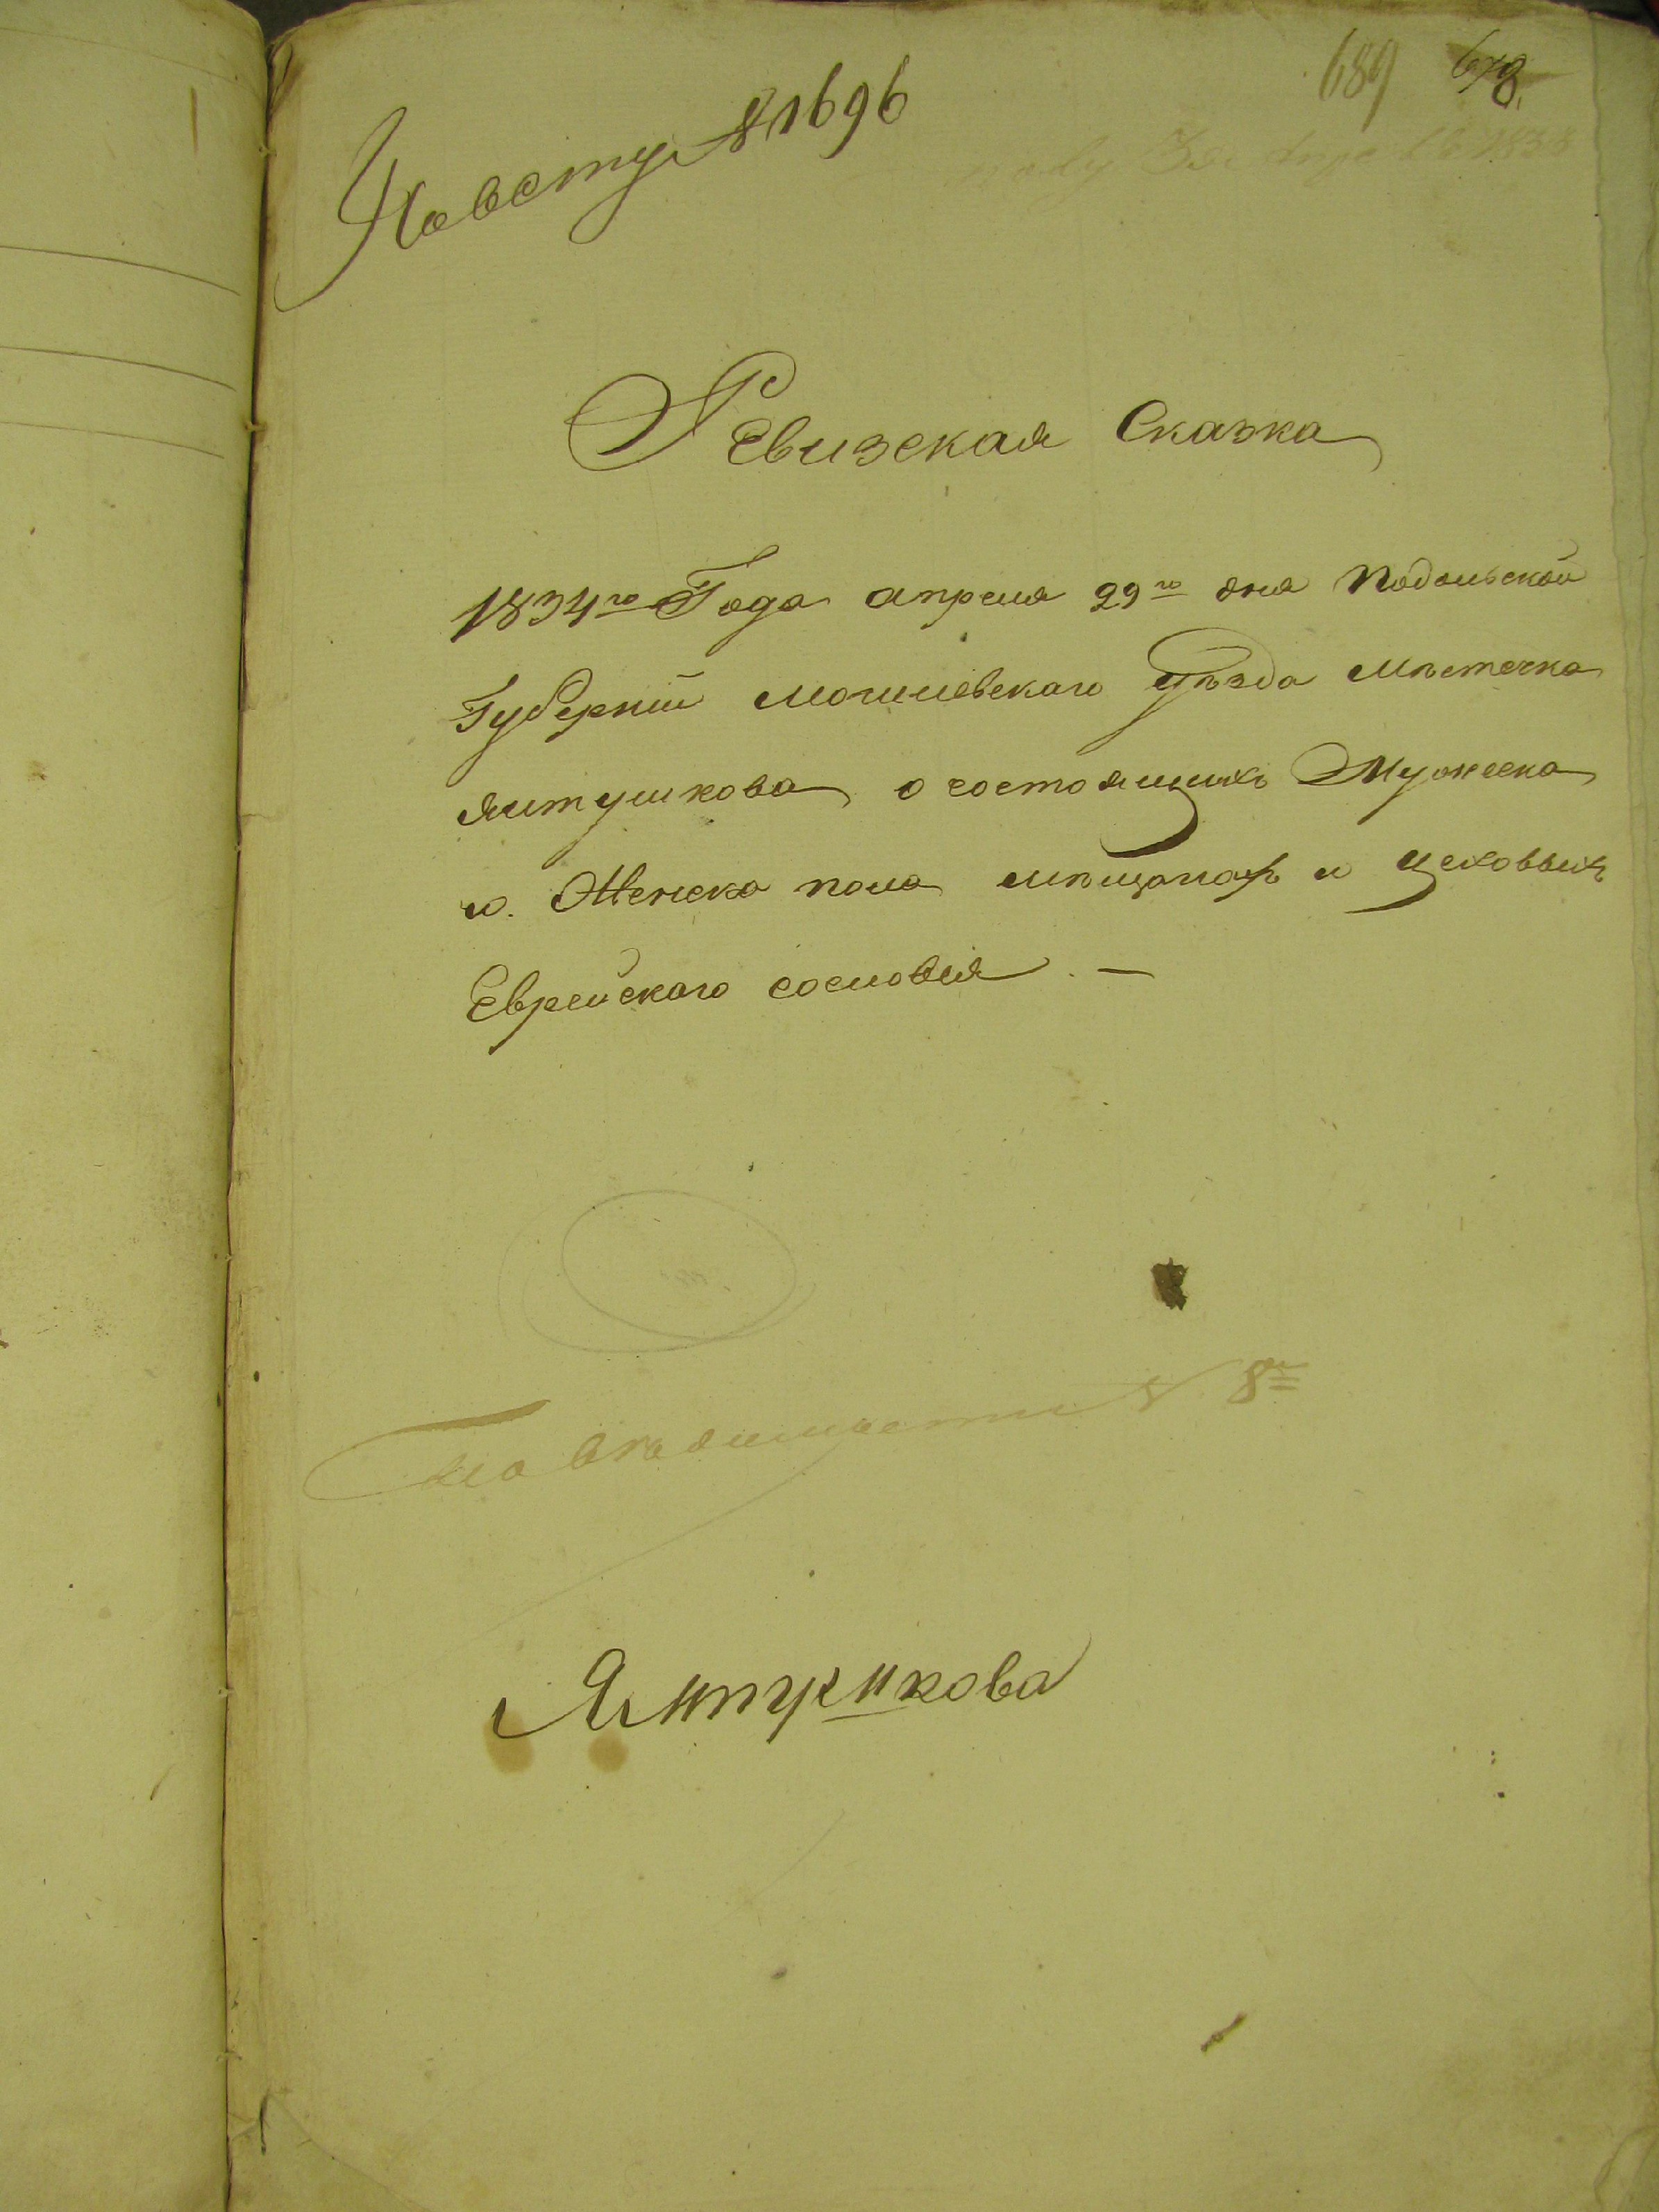 689 678
По вету № 1696
Ревизская Сказка
1834го Года апреля 29го дня Подольской
Губернии могилевскаго уѣзда мѣстечка
Ялтушкова о состоящихъ Мужеска
и Женска пола мѣщанахъ и цеховыхъ
Еврейскаго сословия. —
8
Ялтушкова